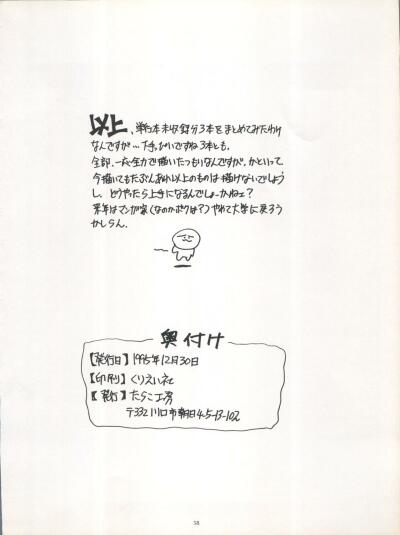 以上、単行本未収録分3本をまとめてみたわけ
なんですが…下手っぴいですね3本とも。
全部、一応全力で描いたつもりなんですが、かといって
今描いてもたぶんあれ以上のものは描けないでしょう
し、どうやったら上手になるんでしょーかねェ?
来年はマンガ家(なのかボクは?)やめて大学に戻ろう
かしらん。
奥付け
【発行日】1995年12月30日
【印刷】くりえい社
【発行】たらこ工房
〒332川口市朝日4-5-13-102
58